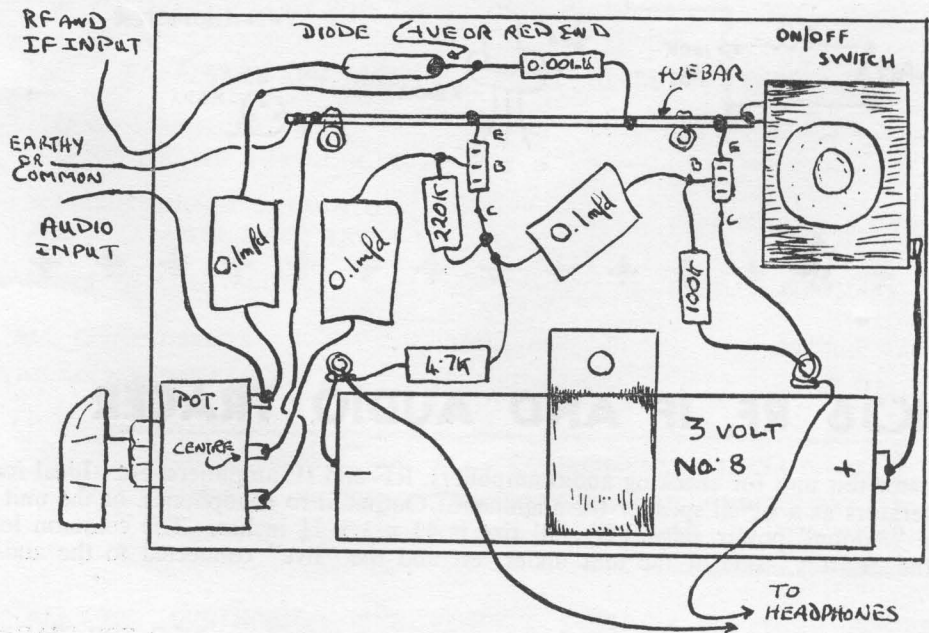 RF AND
IF INPUT
DIODE
+VE OR RED END
ON/OFF
SWITCH
+VE BAR
EARTHY
OR
COMMON
AUDIO
INPUT
E
B
C
E
B
C
0.1mfd
0.1mfd
220K
0.1mfd
100K
4.7K
POT.
CENTRE
3 VOLT
No. 8
+
TO
HEADPHONES